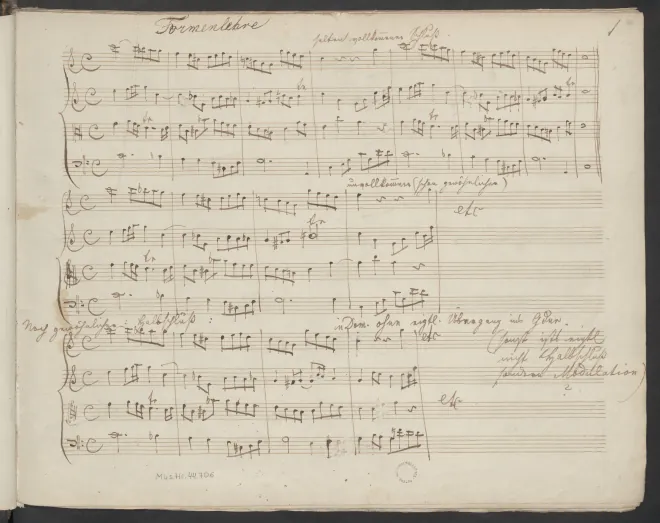 Formenlehre
1
selten vollkommener Schluß.
unvollkommen (schon gewöhnlicher)
etc
Noch gewöhnlicher: Halbschluß:
Dom. ohne eigtl. Übergang in
etc
(sonst
nicht Halbschluß
sondern Modulation)
?
etc